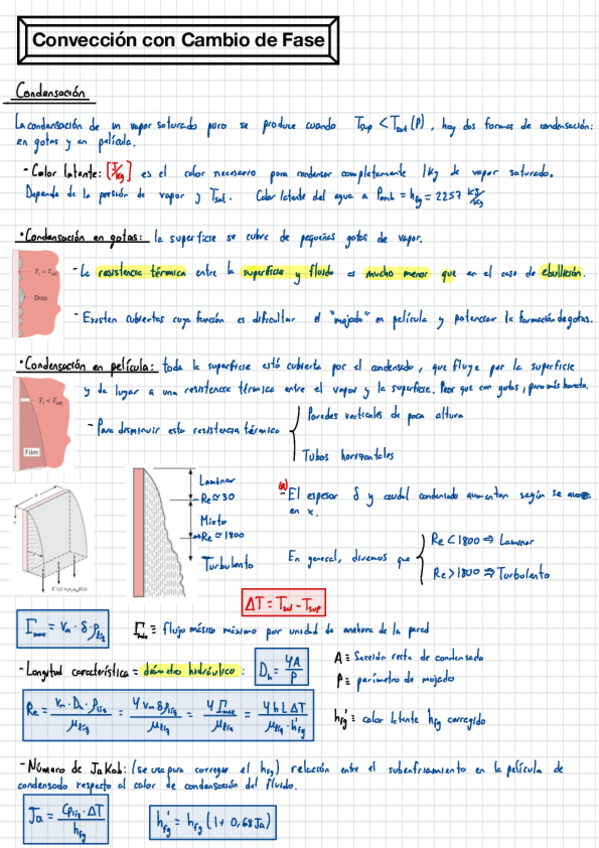 Convección con Cambio de Fase
Condensación
La condensación de un vapor saturado puro se produce cuando Tsup < Tsat (P), hay dos formas de condensación:
en gotas y en película.
- Calor latente: [J/kg] es el calor necesario para condensar completamente 1kg de vapor saturado.
Depende de la presión de vapor y Tsat. Calor latente del agua a Patm = hfg = 2257 kJ/kg
• Condensación en gotas: la superficie se cubre de pequeñas gotas de vapor.
- La resistencia térmica entre la superficie y fluido es mucho menor que en el caso de ebullición.
Ts < Tsat
Drop
- Existen cubiertas cuya función es dificultar el "mojado" en película y potenciar la formación de gotas.
• Condensación en película: toda la superficie está cubierta por el condensado, que fluye por la superficie
y da lugar a una resistencia térmica entre el vapor y la superficie. Peor que con gotas, pero más barato.
Ts < Tsat
Film
- Para disminuir esta resistencia térmica
Paredes verticales de poca altura
Tubos horizontales
Laminar
Re ≃ 30
Mixto
Re ≃ 1800
Turbulento
(a)
- El espesor δ y caudal condensado aumentan según se
en x.
En general, diremos que
Re < 1800 ⇒ Laminar
Re > 1800 ⇒ Turbulento
ΔT = Tsat - Tsup
Γmax = Vm · δ · ρliq
Γmax ≡ flujo másico máximo por unidad de anchura de la pared
- Longitud característica = diámetro hidráulico: Dh = 4A/P
A ≡ Sección recta de condensado
P ≡ perímetro de mojado
Re = Vm · Dh · ρliq / μliq = 4 Vm δ ρliq / μliq = 4 Γmax / μliq = 4 h L ΔT / μliq · h'fg
h'fg ≡ calor latente hfg corregido
- Número de Jakob: (se usa para corregir el hfg) relación entre el subenfriamiento en la película de
condensado respecto al calor de condensación del fluido.
Ja = Cpliq · ΔT / hfg
h'fg = hfg (1 + 0,68 Ja)